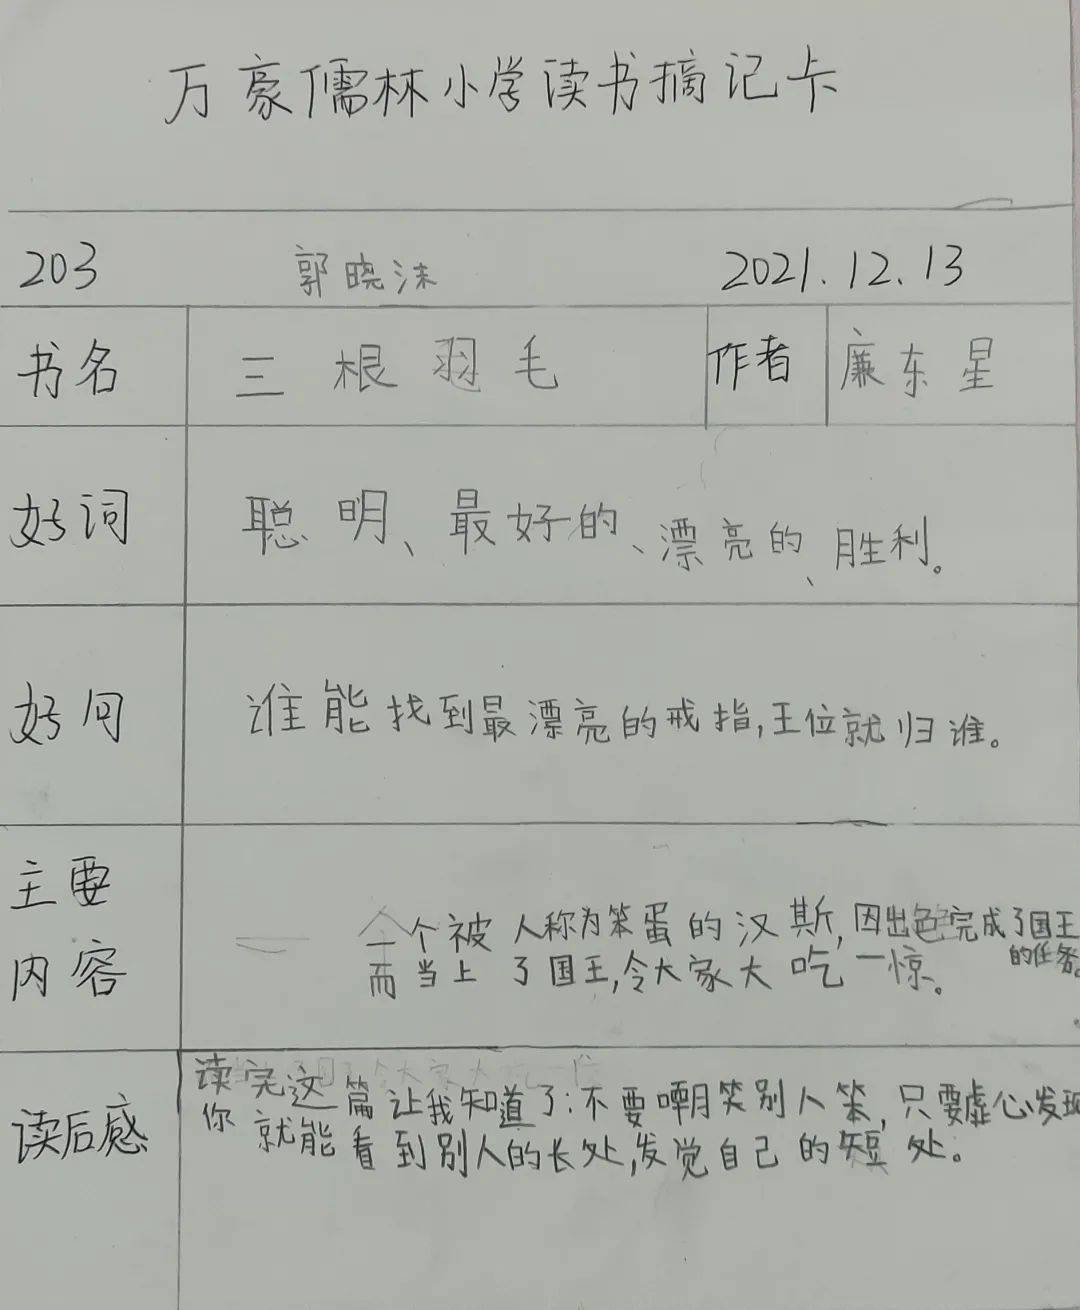 万豪儒林小学读书摘记卡
203 郭晓沫 2021.12.13
书名 三根羽毛 作者 廉东星
好词 聪明、最好的、漂亮的、胜利。
好句 谁能找到最漂亮的戒指,王位就归谁。
主要
内容
一个被人称为笨蛋的汉斯,因出色完成了国王
的任务。
而当上了国王,令大家大吃一惊。
读后感
读完这篇让我知道了:不要嘲笑别人笨,只要虚心发现
你就能看到别人的长处,发觉自己的短处。